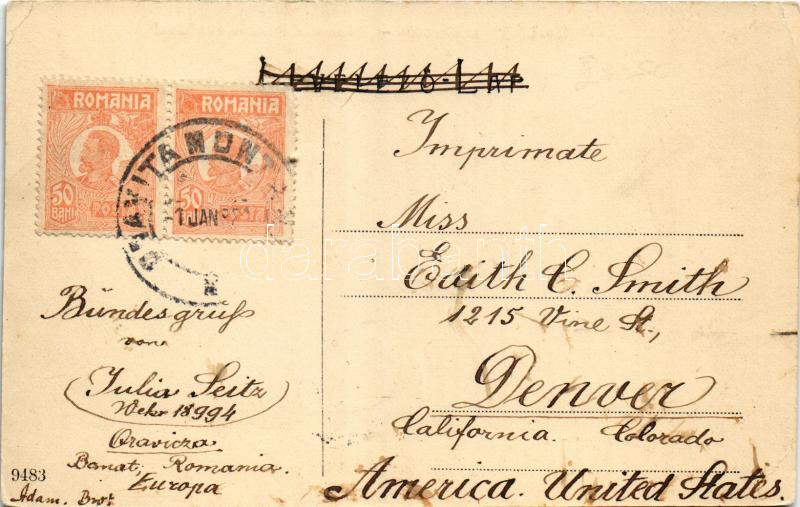 ROMANIA ROMANIA
50 BANI POS 50
ORAVITA MONT
1 JAN
Imprimate
Miss
Edith C. Smith
1215 Vine St.,
Denver
California. Colorado
America. United States.
Bündesgruß
von
Julia Seitz
Weker 18994
Oravicza
Banat, Romania.
Europa
9483
Adam. Brot
darabanth